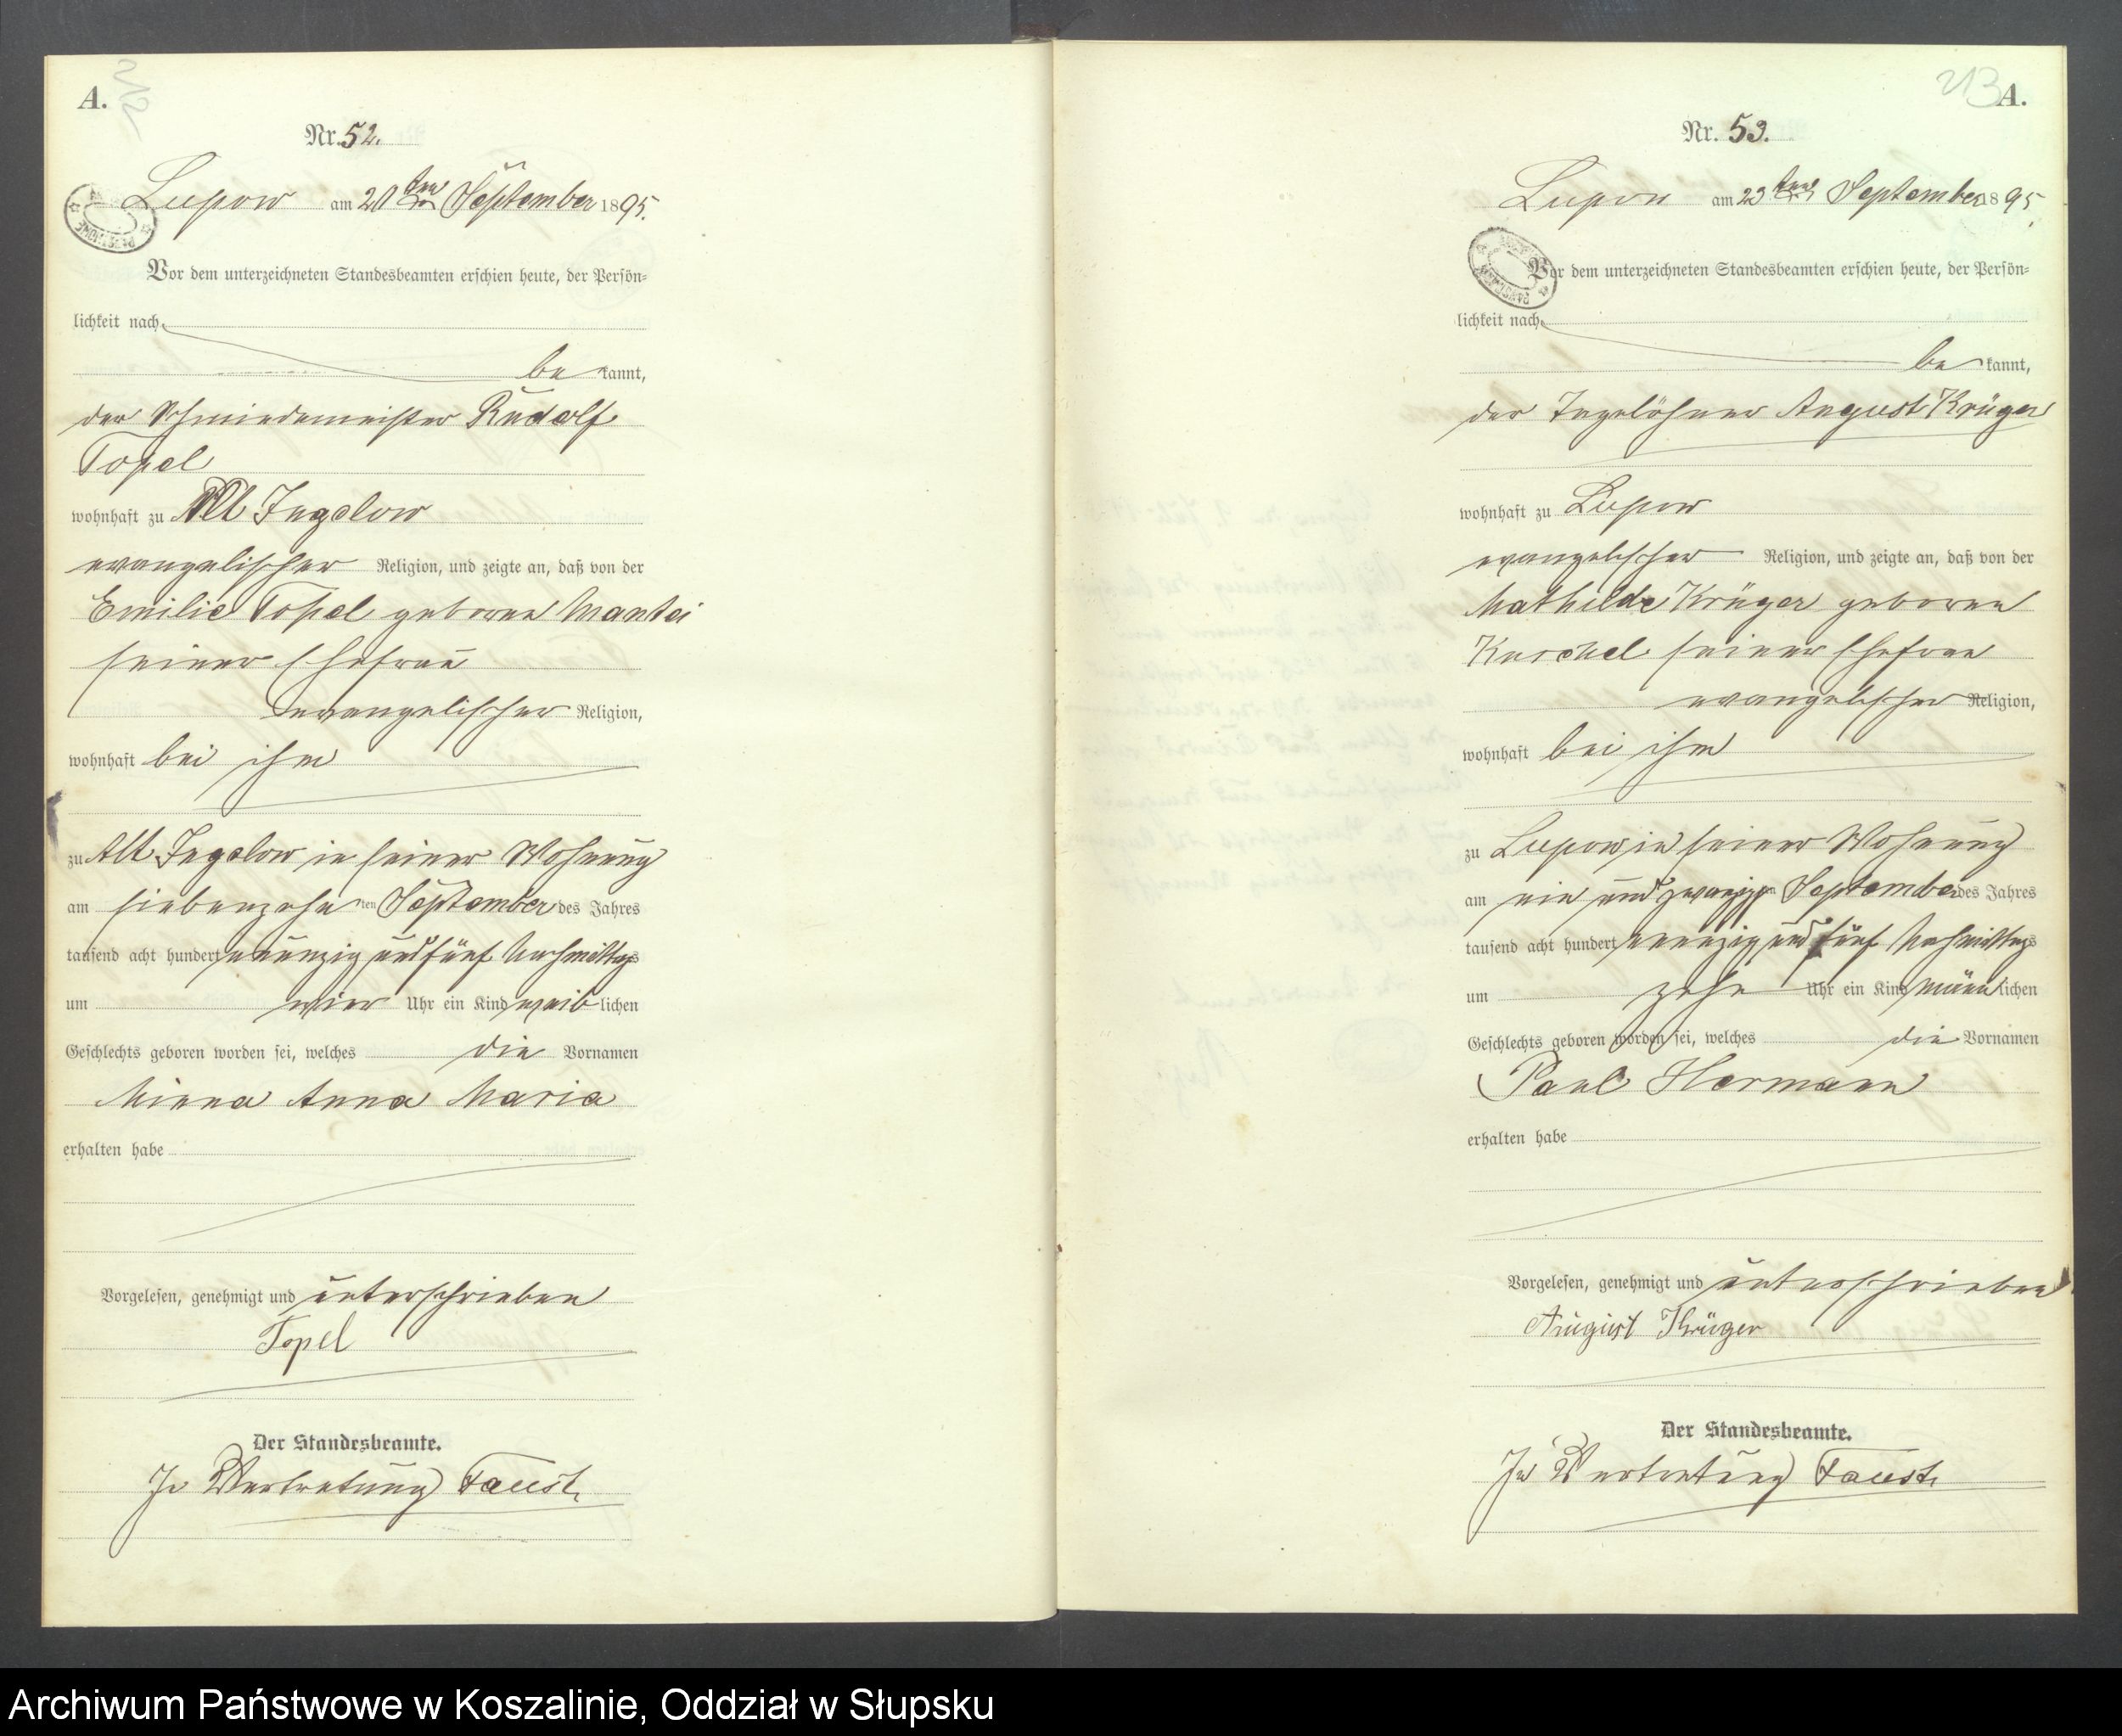 A.
212
Nr. 52.
Lupow am 20ten September 1895.
Vor dem unterzeichneten Standesbeamten erschien heute, der Persön-
lichkeit nach
be kannt,
der Schmiedemeister Rudolf
Topel
wohnhaft zu Alt Jugelow
evangelischer Religion, und zeigte an, daß von der
Emilie Topel geboren Mantei
seiner Ehefrau
evangelischer Religion,
wohnhaft bei ihm
zu Alt Jugelow in seiner Wohnung
am siebenzehnten September des Jahres
tausend acht hundert neunzig und fünf Nachmittags
um vier Uhr ein Kind weiblichen
Geschlechts geboren worden sei, welches die Vornamen
Minna Anna Maria
erhalten habe
Vorgelesen, genehmigt und unterschrieben
Topel
Der Standesbeamte.
In Vertretung Faust
213
A.
Nr. 53.
Lupow am 23ten September 1895
Vor dem unterzeichneten Standesbeamten erschien heute, der Persön-
lichkeit nach
be kannt,
der Tagelöhner August Krüger
wohnhaft zu Lupow
evangelischer Religion, und zeigte an, daß von der
Mathilde Krüger geboren
Kuschel seiner Ehefrau
evangelischer Religion,
wohnhaft bei ihm
zu Lupow, in seiner Wohnung
am ein und zwanzigten September des Jahres
tausend acht hundert neunzig und fünf Nachmittags
um zehn Uhr ein Kind männlichen
Geschlechts geboren worden sei, welches die Vornamen
Paul Hermann
erhalten habe
Vorgelesen, genehmigt und unterschrieben
August Krüger
Der Standesbeamte.
In Vertretung Faust
Archiwum Państwowe w Koszalinie, Oddział w Słupsku